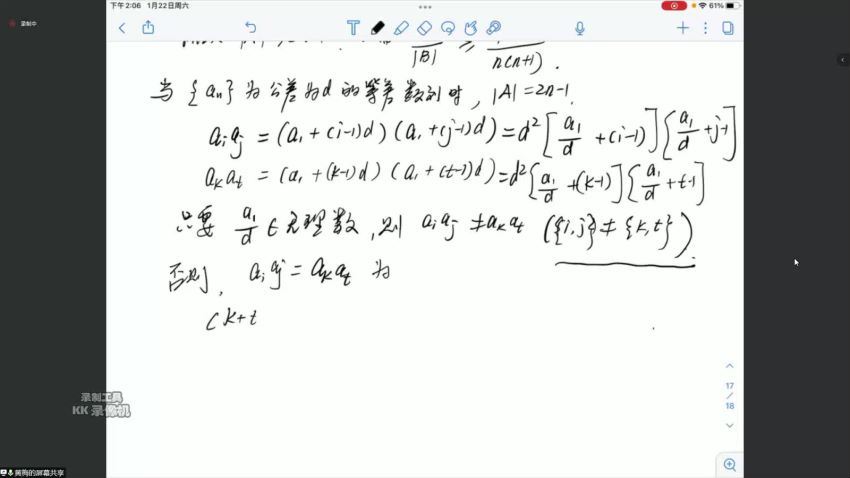 下午2:06 1月22日周六
61%
录制中
|B| ≥ n(n+1).
当{an}为公差为d的等差数列时, |A|=2n-1.
aiaj = (a1+(i-1)d)(a1+(j-1)d)=d²[a1/d+(i-1)][a1/d+j-1]
akat = (a1+(k-1)d)(a1+(t-1)d)=d²[a1/d+(k-1)][a1/d+t-1]
只要 a1/d ∈无理数,则 aiaj≠akat ({i,j}≠{k,t})
否则, aiaj=akat 为
(k+t
17
/
18
录制工具
KK 录像机
黄狗的屏幕共享